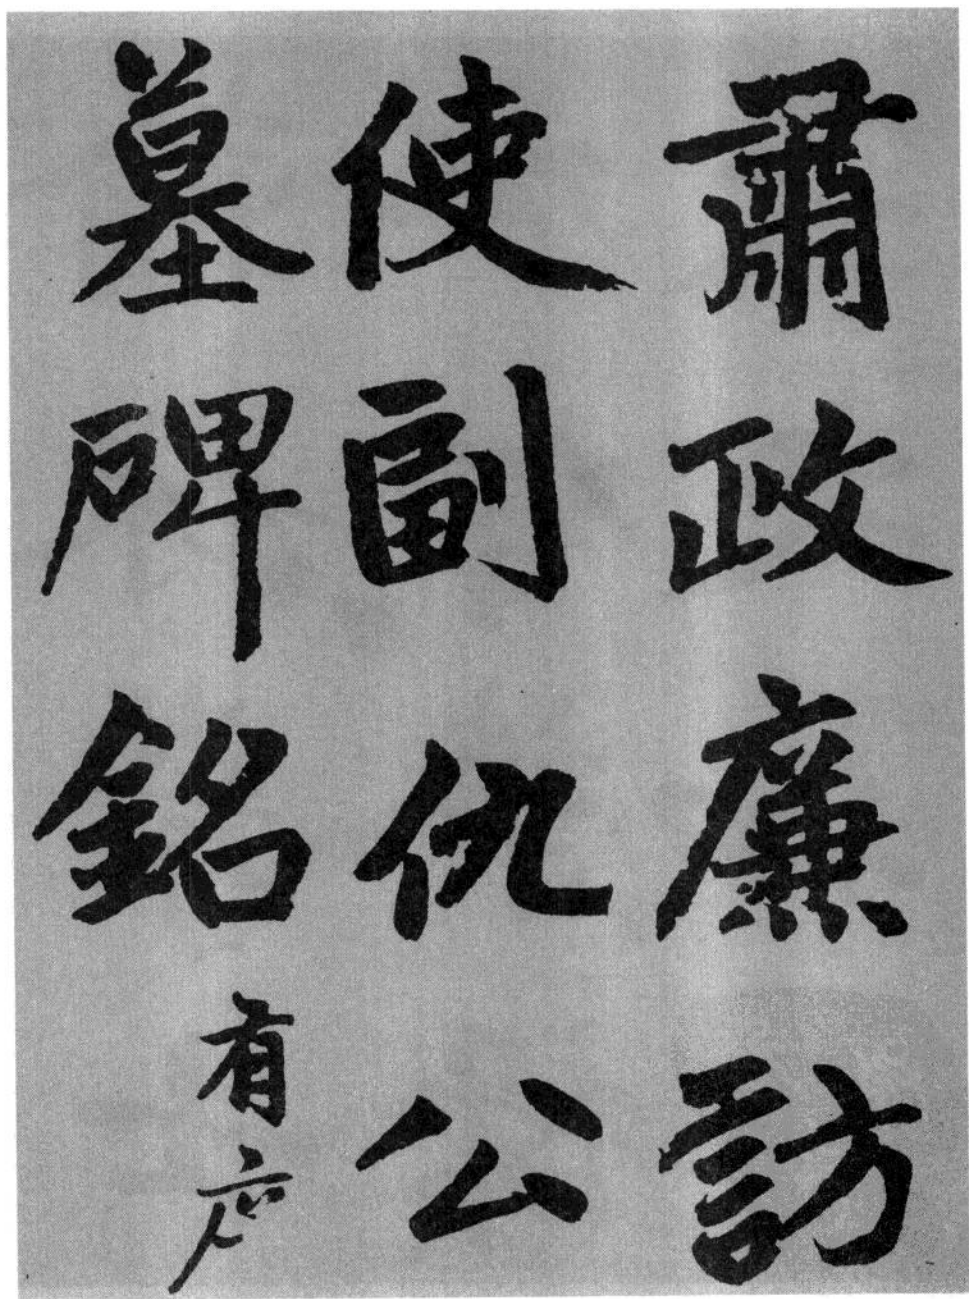 肅政廉訪
使副仇公
墓碑銘有序